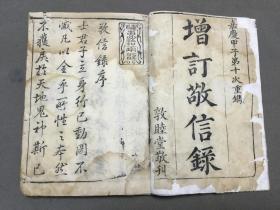 嘉慶甲子第十次重鐫
增訂敬信錄
敦睦堂敬刊
敬信錄序
士君子立身行己動關不
滅凡以全乎所性之本然
不獲戾於天地鬼神斯已